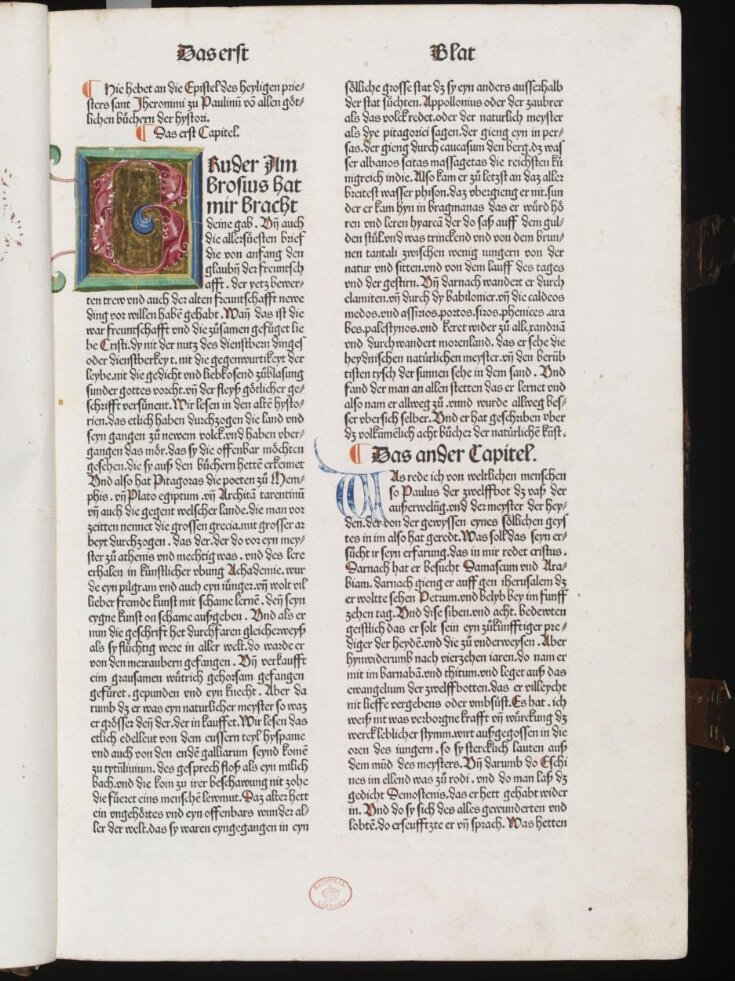 Das erst Blat
Hie hebet an die Epistel des heyligen prie-
sters sant Jheronimi zů Paulinū vō allen göt-
lichen bůchern der hystori.
Das erst Capitel.
BRuder Am
brosius hat
mir bracht
deine gab. Vn̄ auch
die allersüesten brief
die von anfang den
glaubn̄ der freuntsch
afft. der yetz bewer-
ten trew vnd auch der alten freuntschafft newe
ding vor willen habē gehabt. Wan̄ das ist die
war freuntschafft vnd die zůsamen gefüget lie
be Cristi. dy nit der nutz des dienstbern dinges
oder dienstberkeyt. nit die gegenwurtikeyt der
leybe. nit die gedicht vnd liebkosend zůblasung
sunder gottes vorcht. vn̄ der fleyß götlicher ge-
schrifft versünent. Wir lesen in den altē hysto-
rien. das etlich haben durchzogen die land vnd
seyn gangen zů newem volck. vnd haben vber-
gangen das mör. das sy die offenbar möchten
gesehen. die sy auß den büchern hettē erkennet
Vnd also hat Pitagoras die poeten zů Mem-
phis. vn̄ Plato egiptum. vn̄ Architā tarentinū
vn̄ auch die gegent welscher lande. die man vor
zeitten nennet die grossen grecia. mit grosser ar
beyt durchzogen. das der. der do vor eyn mey-
ster zů athenis vnd mechtig was. vnd des lere
erhalen in künstlicher vbung Achademie. wur
de eyn pilgram vnd auch eyn iünger. vn̄ wolt vil
lieber fremde kunst mit schame lernē. den̄ seyn
eygne kunst on schame außgeben. Vnd als er
nun die geschrifft het durchfaren gleicherweyß
als sy flüchtig were in aller welt. do warde er
von den merraubern gefangen. Vn̄ verkaufft
eim grausamen wütrich gehorsam gefangen
gefüret. gepunden vnd eyn knecht. Aber da
rumb dz er was eyn naturlicher meyster so waz
er grösser den̄ der. der in kauffet. Wir lesen das
etlich edelleut von dem eussern teyl hyspanie
vnd auch von den endē galliarum seynd komē
zů tytüliuium. des gesprech floß als eyn milich
bach. vnd die kom zů irer beschawung nit zohe
die füeret eins menschē lewmut. Daz alter hett
ein vngehörtes vnd eyn offenbars wunder al-
ler der welt. das sy waren eyngegangen in eyn
sölliche grosse stat dz sy eyn anders ausserhalb
der stat süchten. Appollonius oder der zaubrer
als das volck redet. oder der naturlich meyster
als dye pitagorici sagen. der gieng eyn in per-
sas. der gieng durch caucasum den berg. dz was
ser albanos scitas massagetas die reichsten kü
nigreich indie. Also kam er zů letzst an daz aller
breitest wasser phison. daz vbergieng er mit. sun
der er kam hyn in bragmanas das er würd hö
ren vnd leren hyarcā der do saß auff dem gul-
den stůl. vnd was trinckend vnd von dem brun-
nen tantali zwischen wenig iungern von der
natur vnd sitten. vnd von dem lauff des tages
vnd der gestirn. Vn̄ darnach wandert er durch
elamiten. vn̄ durch dy babilonier. vn̄ die caldeos
medos. vnd assirios. portos. siros. phenices. ara
bes. palestynos. vnd keret wider zů alexandriā
vnd durchwandert morenland. das er sehe die
heydnischen natürlichen meyster. vn̄ den berüb
tisten tysch der sunnen sehe in dem sand. Vnd
fand der man an allen stetten das er lernet vnd
also nam er allweg zů. vnnd wurde allweg bes-
ser vber sich selber. Vnd er hat geschriben vber
dz volkumēlich acht bücher der natürlichē kūst.
Das ander Capitel.
WAs rede ich von weltlichen menschen
so Paulus der zwelffbot dz vaß der
außerwelūg. vnd der meyster der hey-
den. der von der gewyssen eynes söllichen geys
tes in im also hat geredt. Was soll das seyn er-
sücht ir seyn erfarung. das in mir redet cristus.
Darnach hat er besucht Damascum vnd Ara-
biam. darnach gieng er auff gen iherusalem dz
er woltte sehen Petrum. vnd belyb bey im fünff
zehen tag. Vnd dise siben. vnd acht. bedewten
geistlich das er solt sein eyn zükünfftiger pre-
diger der heydē. vnd die zů vnderweysen. Aber
hynwiderumb nach vierzehen iaren. do nam er
mit im barnabā. vnd thitum. vnd leget auß das
ewangelium der zwelffbotten. das er villeycht
nit lieffe vergebens oder vmbsüst. Es hat. ich
weiß nit was verborgne krafft vn̄ würckung dz
wercklebicher stymm. wirt außgegossen in die
oren des iungern. so sy stercklich lauten auß
dem mūd des meysters. Vn̄ darumb do Eschi
nes im ellend was zů rodi. vnd do man laß dz
gedicht Demostenis. das er hett gehabt wider
in. Vnd do sy sich des alles gewunderten vnd
lobtē. do erseufftzte er vn̄ sprach. Was hetten